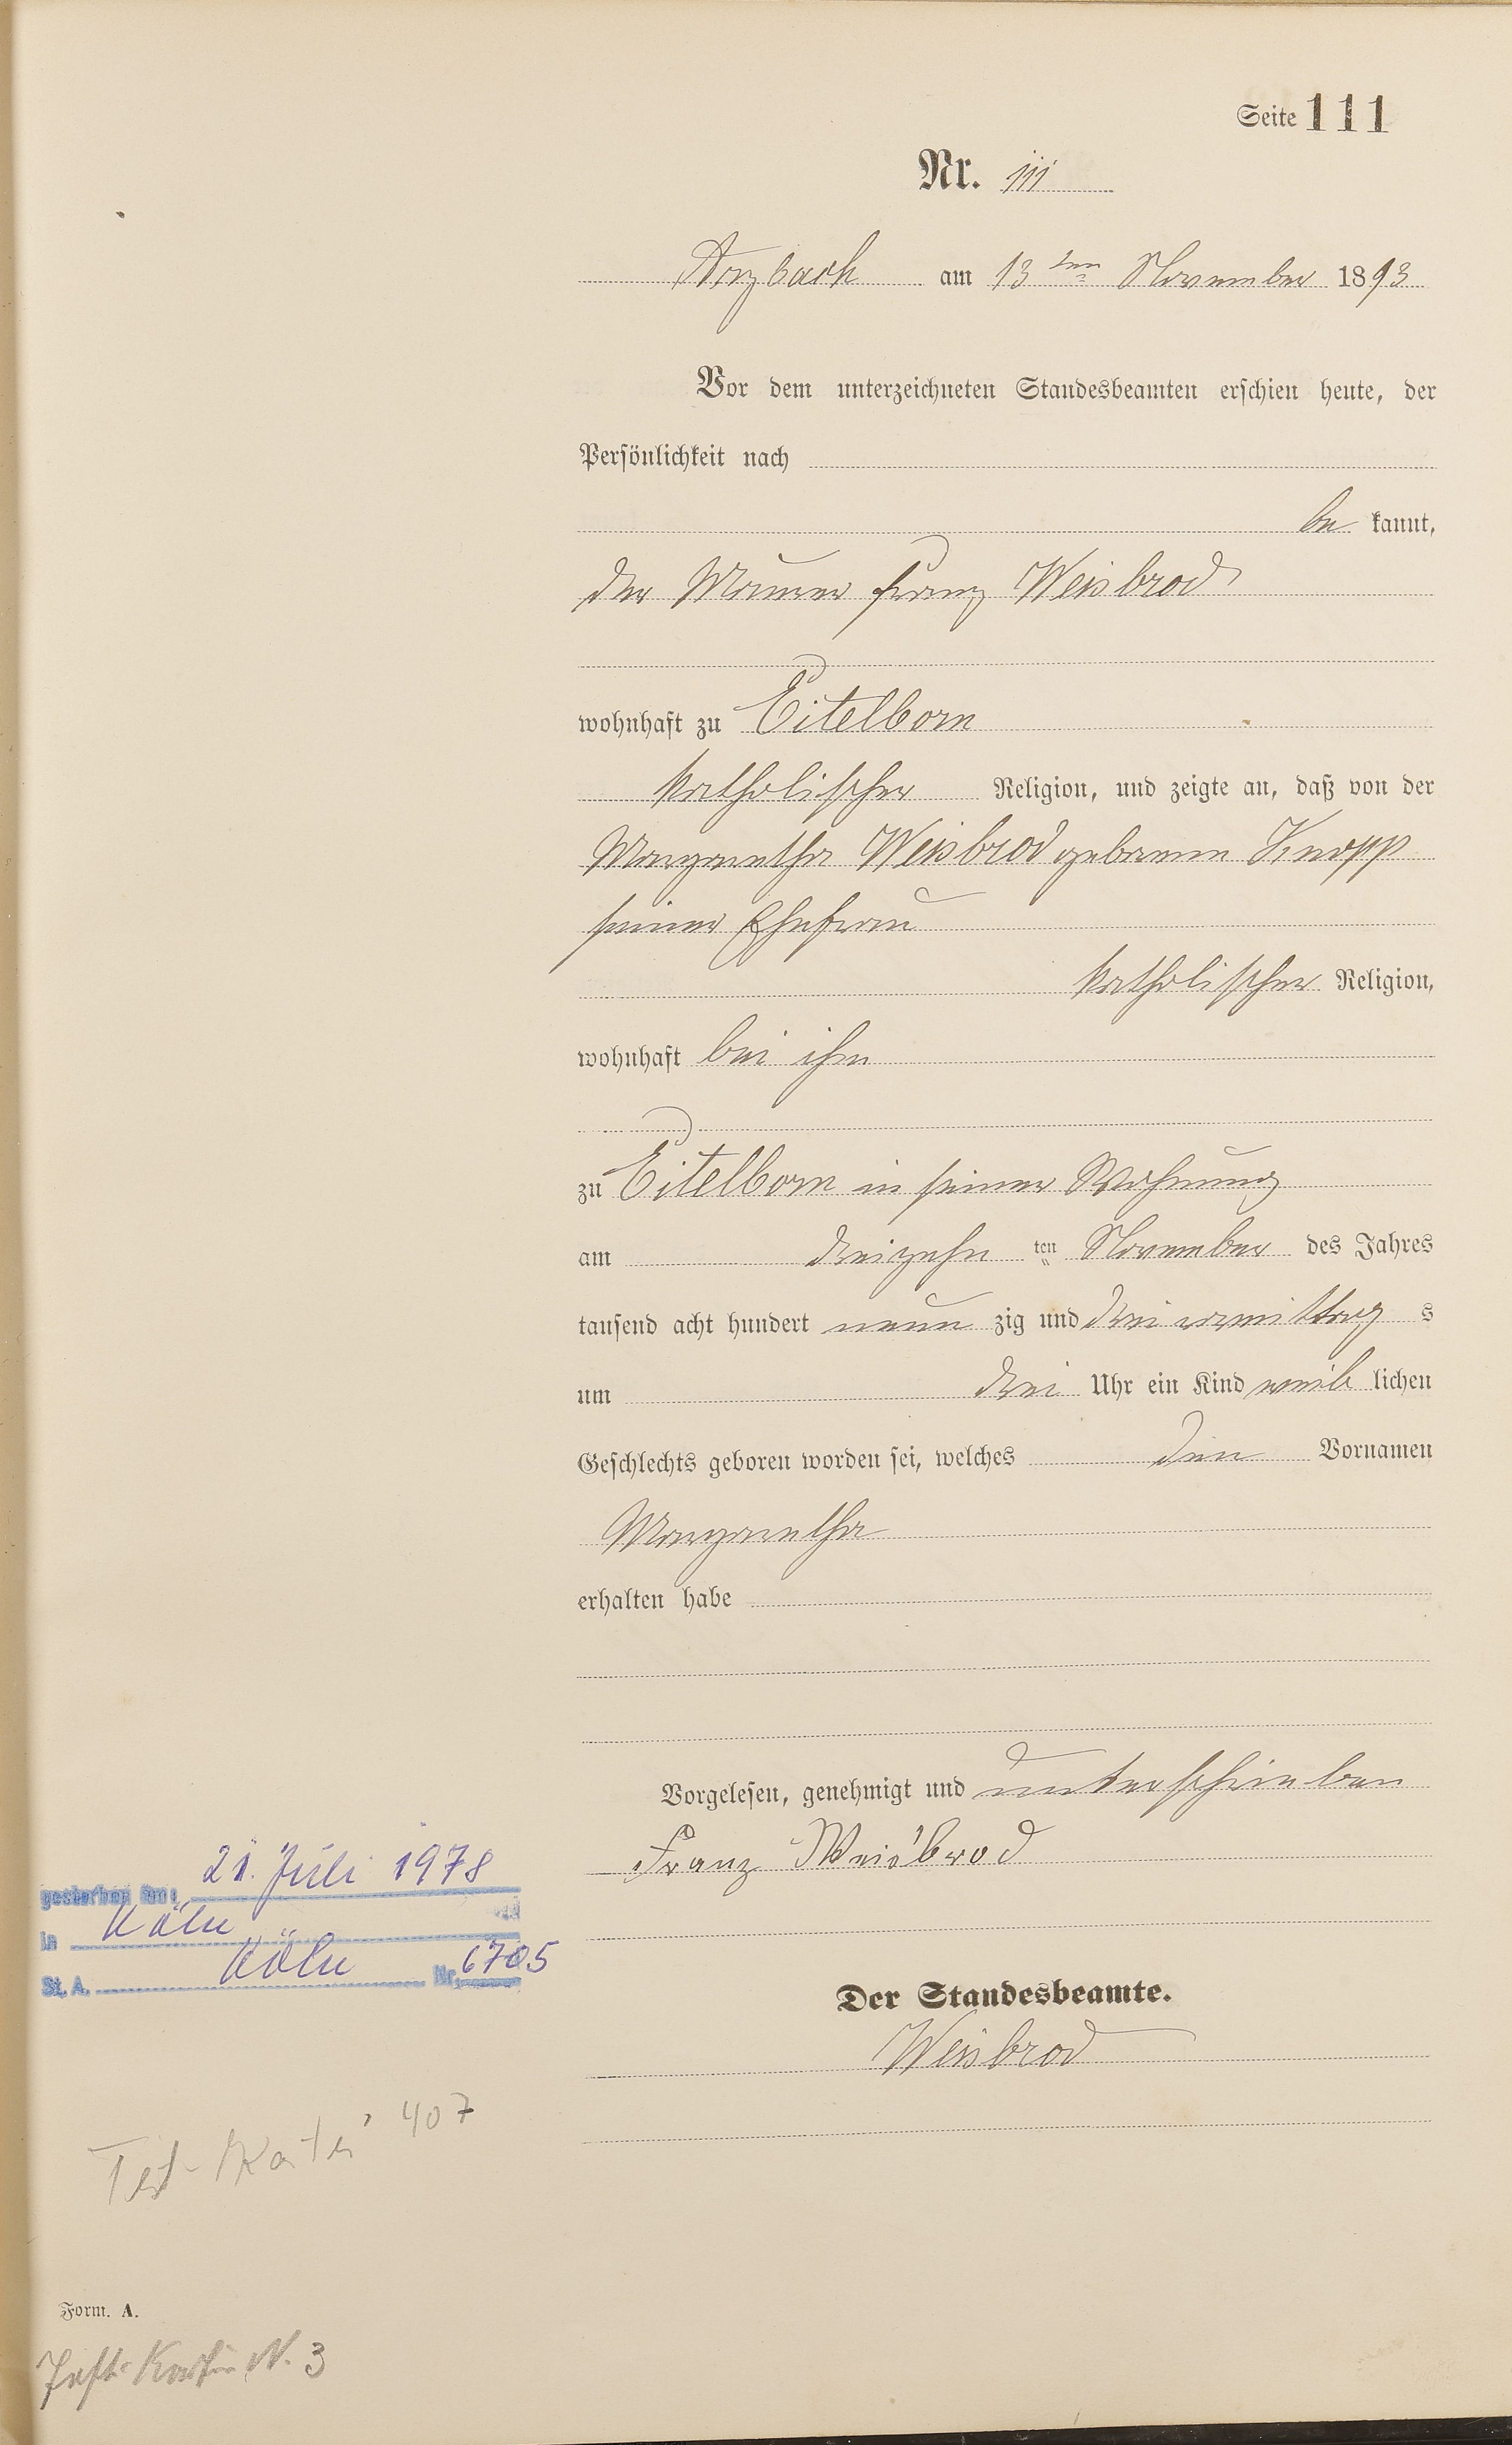 Seite 111
Nr. 111
Arzbach am 13ten November 1893
Vor dem unterzeichneten Standesbeamten erschien heute, der
Persönlichkeit nach
be kannt,
der Maurer Franz Weisbrod
wohnhaft zu Eitelborn
katholischer Religion, und zeigte an, daß von der
Margaretha Weisbrod geborene Knopp
seiner Ehefrau
katholischer Religion,
wohnhaft bei ihm
zu Eitelborn in seiner Wohnung
am dreizehn ten November des Jahres
tausend acht hundert neun zig und drei vormittag s
um drei Uhr ein Kind weib lichen
Geschlechts geboren worden sei, welches den Vornamen
Margaretha
erhalten habe
Vorgelesen, genehmigt und unterschrieben
Franz Weisbrod
gestorben am: 21. Juli 1978
in Köln
St. A. Köln Nr. 6705
Der Standesbeamte.
Weisbrod
407
Form. A.
N. 3